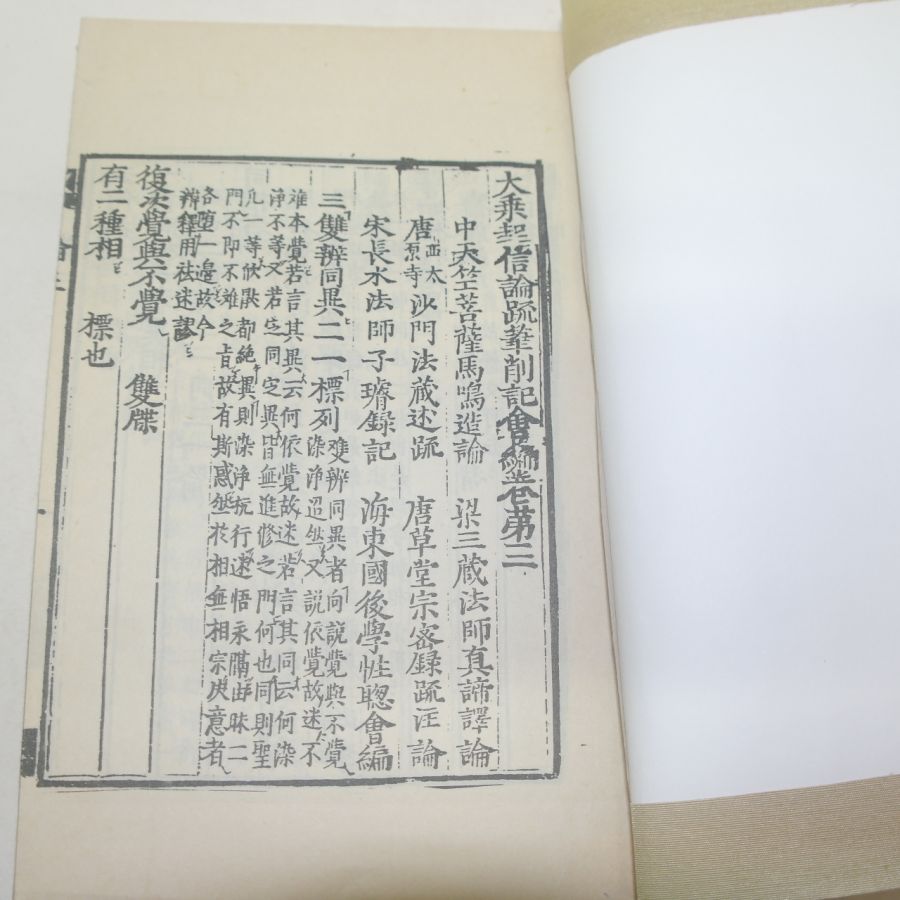 大乗起信論疏筆削記會編卷第三
中天竺菩薩馬鳴造論　梁三藏法師真諦譯論
唐西太原寺沙門法藏述疏　唐草堂宗密録疏注論
宋長水法師子璿録記　海東國後學性聰會編
三雙辨同異二一標列
雙辨同異者向說覺與不覺
染淨迢然又說依覺故迷不
離本覺若言其異云何依覺故迷若言其同云何染
淨不等又若定同定異皆無進修之門何也同則聖
凡一等伏猒都絶異則染淨抗行迷悟永隔由昧二
門不即不離之旨故有斯惑然於相無相宗
各墮一邊故今
辨釋用祛迷謬
復次覺與不覺　雙牒
有二種相　標也